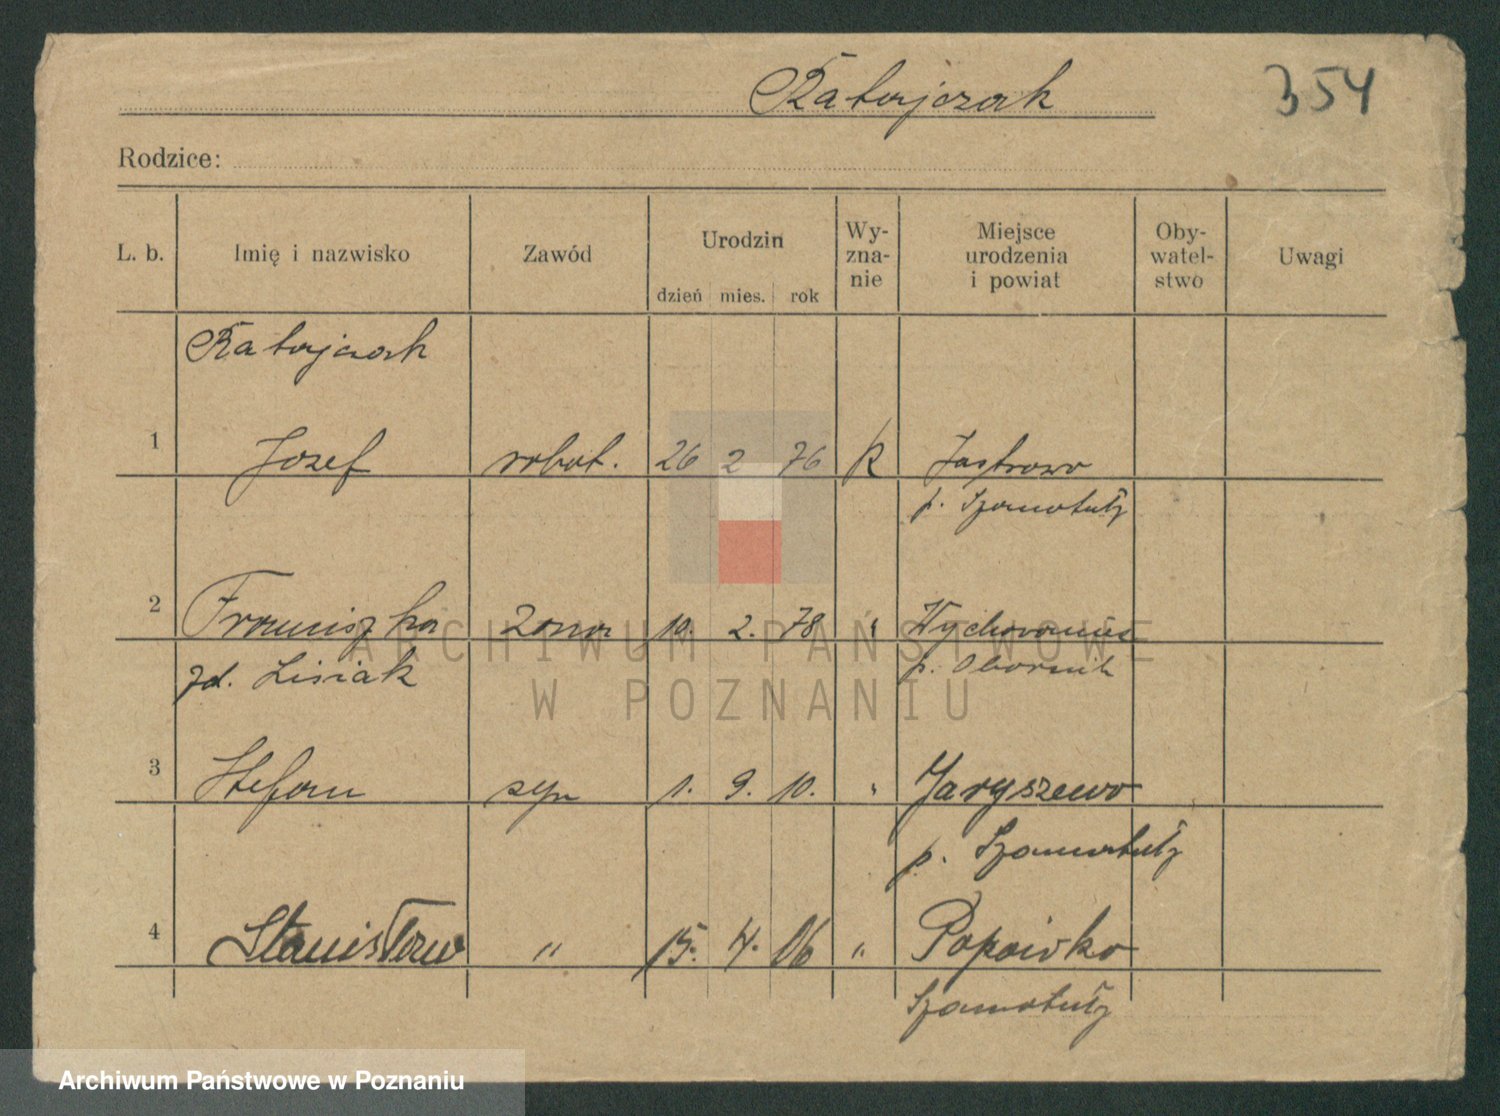 Ratajczak
354
Rodzice:
L. b. Imię i nazwisko Zawód Urodzin dzień mies. rok Wy-zna-nie Miejsce urodzenia i powiat Oby-watel-stwo Uwagi
Ratajczak
1 Józef robot. 26 2 76 k Jastrowo
p. Szamotuły
2 Franciszka żona 10. 2. 78 " 
zd. Lisiak p. Obornik
3 Stefan syn 1. 9. 10. " Jaryszewo
p. Szamotuły
4 Stanisław " 15. 4. 06 " Popowko
Szamotuły
ARCHIWUM PAŃSTWOWE
W POZNANIU
Archiwum Państwowe w Poznaniu